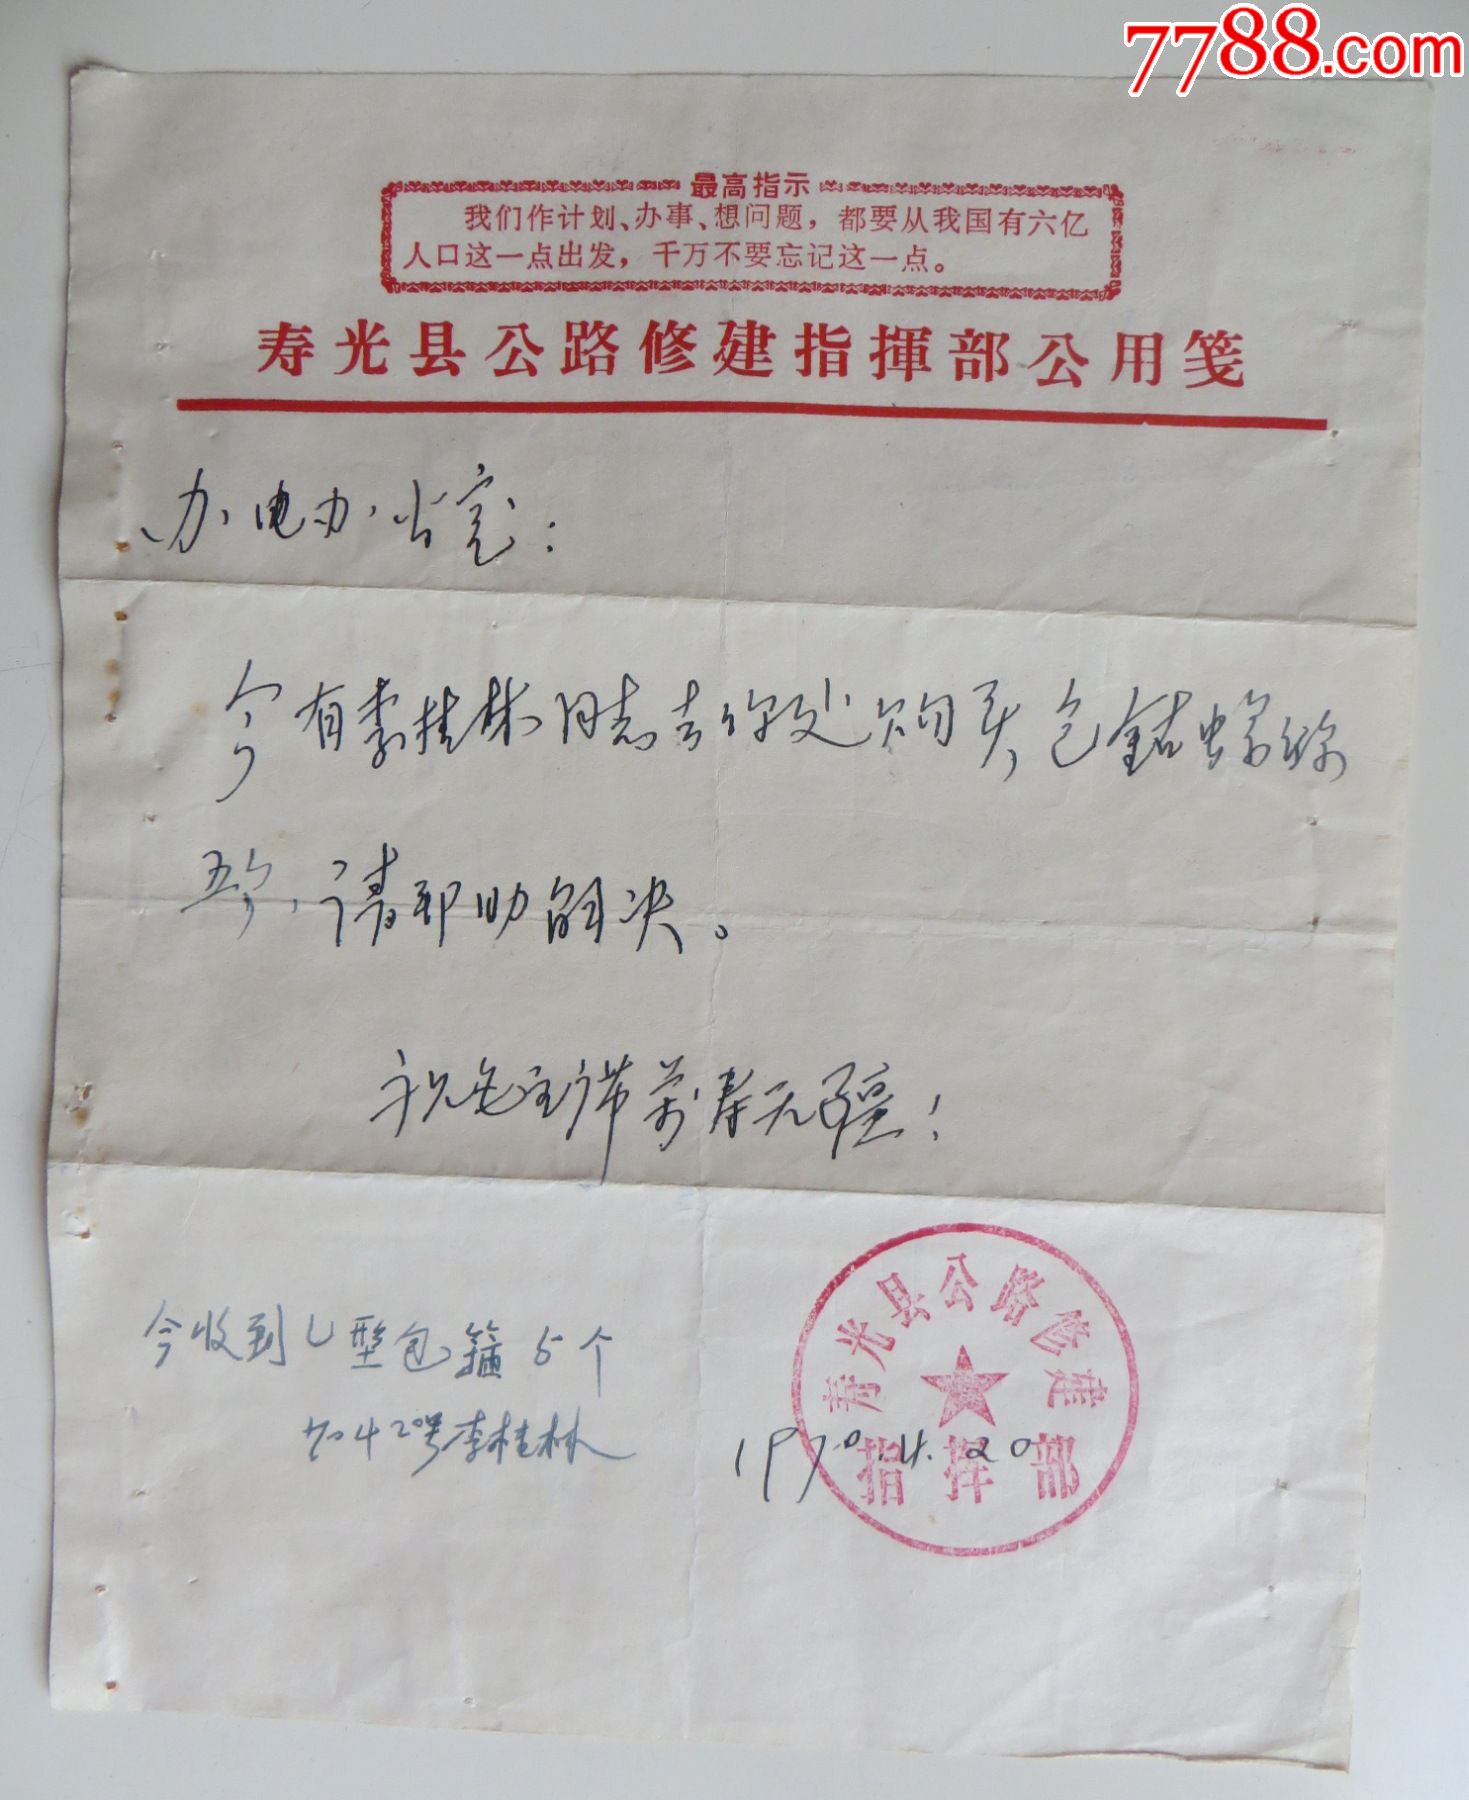 7788.com
最高指示
我们作计划、办事、想问题，都要从我国有六亿
人口这一点出发，千万不要忘记这一点。
寿光县公路修建指揮部公用笺
办电办公室：
今有李桂林同志去你处购买包钻螺丝
五个，请帮助解决。
祝毛主席万寿无疆！
今收到U型包箍5个
70 4 20号李桂林
1970.4.20
寿光县公路修建
指挥部